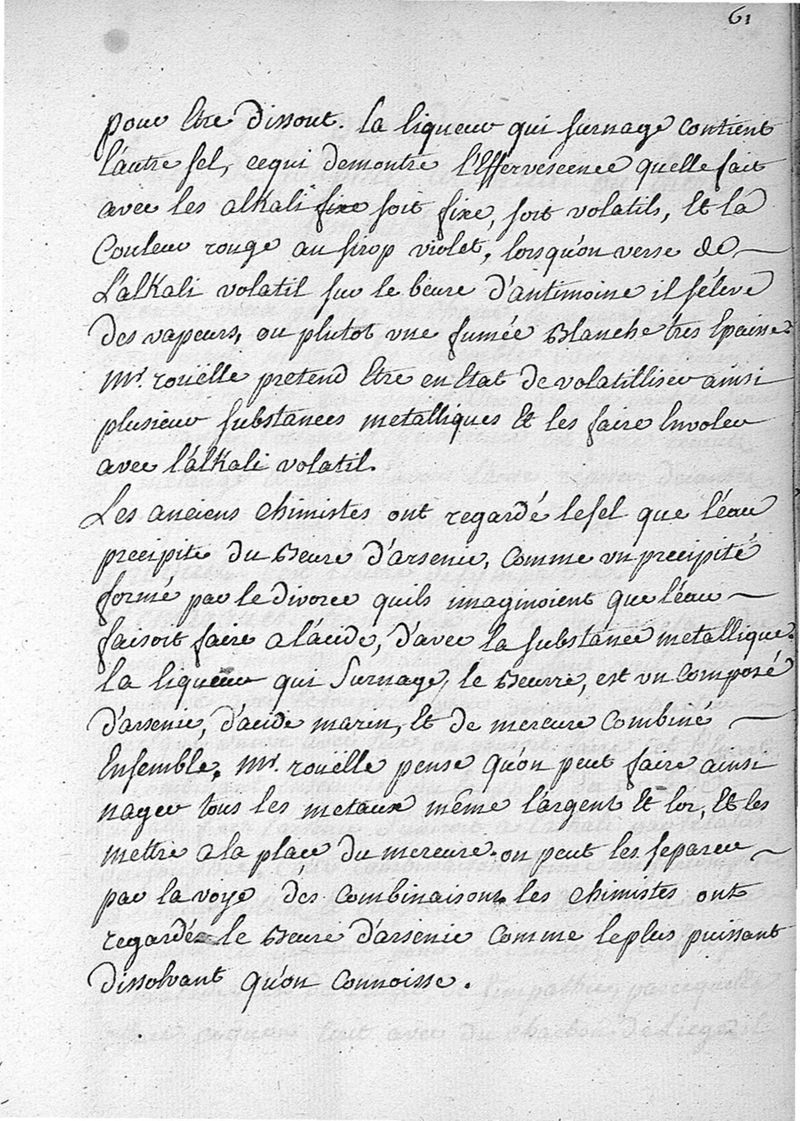 61
pour Etre Dissout. La liqueur qui surnage contient
l'autre sel, cequi demontre l'Effervescence quelle fait
avec les alkali fixe soit fixe, soit volatils, Et la
Couleur rouge au sirop violet, lorsqu'on verse de
L'alkali volatil sur le beure d'antimoine il s'éleve
Des vapeurs, ou plutot vne fumée Blanche tres Epaisse.
Mr. roüelle pretend Etre en Etat de volatilliser ainsi
plusieur substances metalliques Et les faire Envoler
avec l'alkali volatil.
Les anciens chimistes ont regardé lesel que l'eau
precipite du Beure d'arsenic, comme vn precipité
formé par le divorce quils imaginoient que l'eau
faisoit faire a l'acide, d'avec la substance metallique.
la liqueur qui Surnage, le Beurre, est vn composé
D'arsenic, d'acide marin, Et de mercure Combiné
Ensemble. Mr. roüelle pense qu'on peut faire ainsi
nager tous les metaux même l'argent Et lor, Et les
mettre a la place du mercure. on peut les separer
par la voye des Combinaisons. les chimistes ont
regardés le Beure d'arsenic comme leplus puissant
Dissolvant qu'on connoisse.